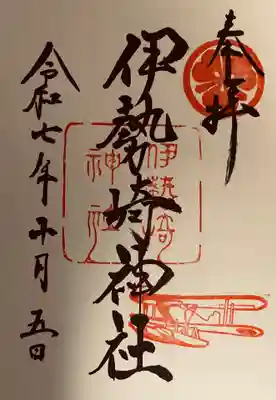 奉拝
伊勢崎神社
伊勢崎
神社
令和七年十月五日